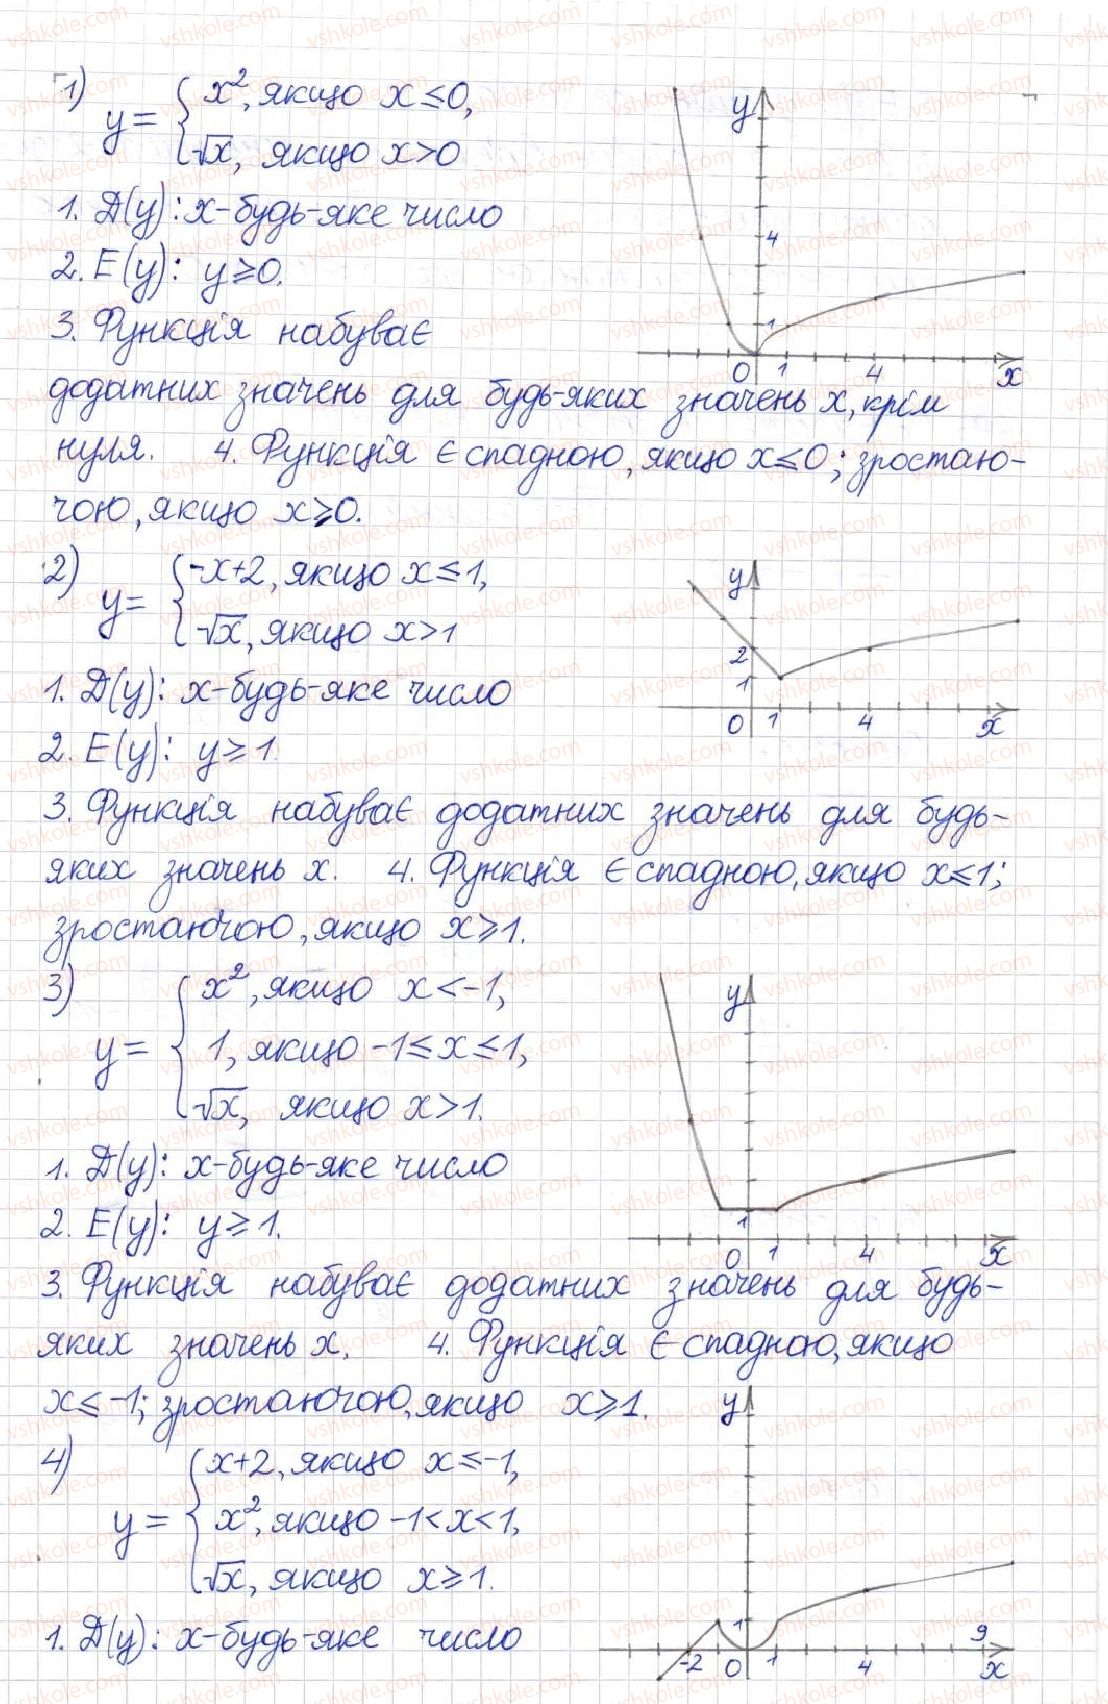 1) y = { x², якщо x ≤ 0,
√x, якщо x > 0
1. D(y): x - будь-яке число
2. E(y): y ≥ 0.
3. Функція набуває
додатних значень для будь-яких значень x, крім
нуля. 4. Функція є спадною, якщо x ≤ 0; зростаю-
чою, якщо x ≥ 0.
y
4
1
0 1 4 x
2) y = { -x+2, якщо x ≤ 1,
√x, якщо x > 1
1. D(y): x - будь-яке число
2. E(y): y ≥ 1.
3. Функція набуває додатних значень для будь-
яких значень x. 4. Функція є спадною, якщо x ≤ 1;
зростаючою, якщо x ≥ 1.
y
2
1
0 1 4 x
3) y = { x², якщо x < -1,
1, якщо -1 ≤ x ≤ 1,
√x, якщо x > 1.
1. D(y): x - будь-яке число
2. E(y): y ≥ 1.
3. Функція набуває додатних значень для будь-
яких значень x. 4. Функція є спадною, якщо
x ≤ -1; зростаючою, якщо x ≥ 1.
y
1
0 1 4 x
4) y = { x+2, якщо x ≤ -1,
x², якщо -1 < x < 1,
√x, якщо x ≥ 1.
1. D(y): x - будь-яке число
y
1 9
-2 0 1 4 x
vshkole.com